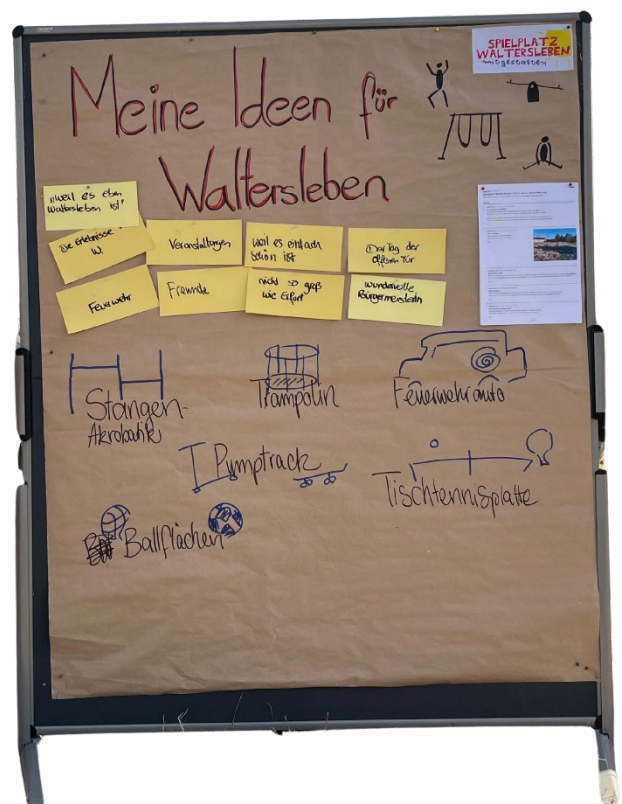 SPIELPLATZ
WALTERSLEBEN
mitgestalten
Meine Ideen für
Waltersleben
"weil es eben
Waltersleben ist"
Die Erlebnisse
W.
Veranstaltungen
weil es einfach
schön ist
Der Tag der
offenen Tür
Feuerwehr
Freunde
nicht so groß
wie Erfurt
wundervolle
Bürgermeisterin
Stangen-
Akrobatik
Trampolin
Feuerwehrauto
Pumptrack
Tischtennisplatte
Ballflächen